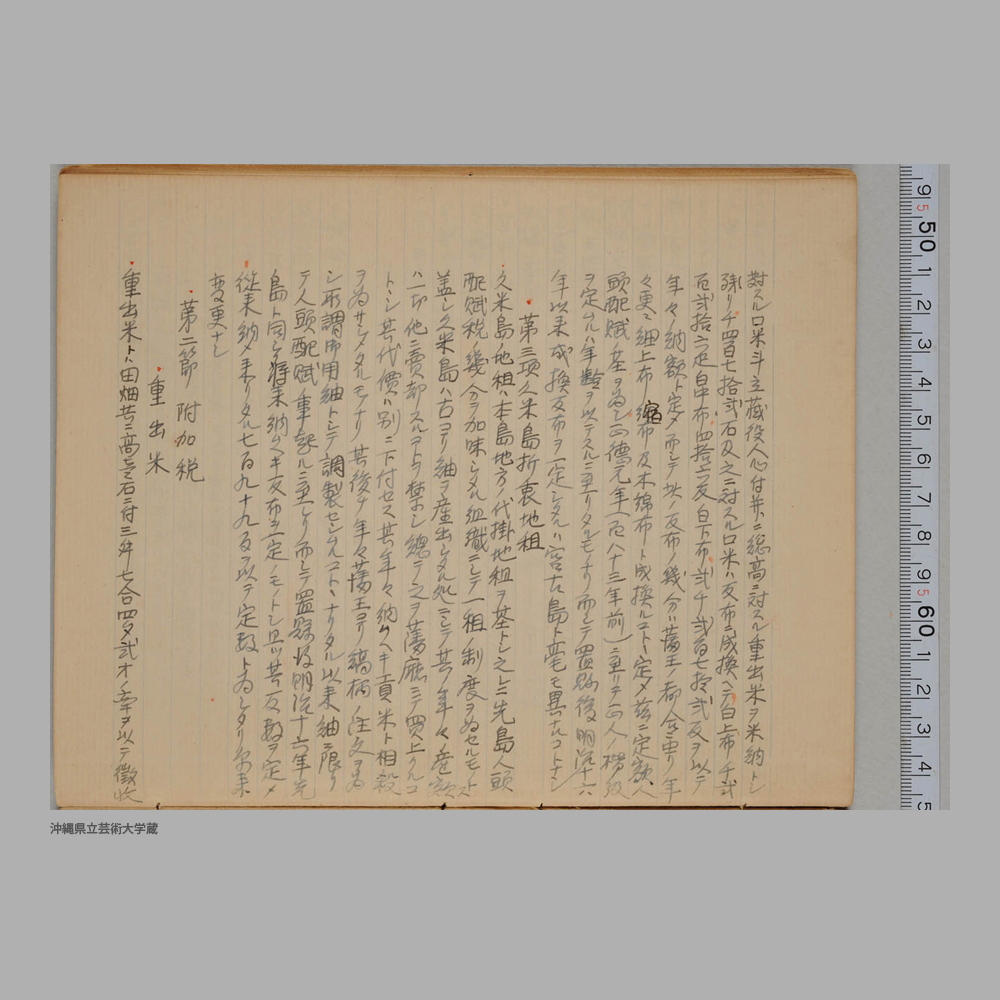 対スル口米斗立蔵役人心付并ニ総高ニ対スル重出米ヲ米納トシ
残リ千四百七拾弐石及之ニ対スル口米ハ反布ニ成換ヘテ白上布千弐
百弐拾六疋白中布四拾六反白下布弐千弐百七拾弐反ヲ以テ
年々納額ト定メ而シテ此ノ反布ノ幾分ハ藩王ノ都合ニ由リ年
々更ニ細上布縮布及木綿布ト成換ルコトト定メ茲ニ定額人
頭配賦ノ基ヲ為シ正徳元年(百八十三年前)ニ至リテ正人ノ階級
ヲ定ムルハ年齢ヲ以テスルニ至リタルモノナリ而シテ置県後明治十六
年以来成換反布ヲ一定シタルハ宮古島ト毫モ異ナルコトナシ
第三項久米島折衷地租
久米島ノ地租ハ本島地方ノ代掛地租ヲ基トシ之レニ先島人頭
配賦税幾分ヲ加味シタル組織ニシテ一種ノ制度ヲ為セルモノトス
盖シ久米島ハ古ヨリ紬ヲ産出シタル処ニシテ其ノ年々ノ産額
ハ一切他ニ売却スルコトヲ禁シ総テ之ヲ藩庁ニテ買上クルコ
トトシ其代償ハ別ニ下付セス其年々納ムヘキ貢米ト相殺
ヲ為サシメタルモノナリ其後チ年々藩王ヨリ縞柄ノ注文ヲ為
シ所謂御用紬トシテ調製セシムルコトトナリタル以来紬ニ限リ
テ人頭配賦ノ事起ルニ至レリ而シテ置県后明治十六年先
島ト同シク将来納ムヘキ反布ヲ一定ノモノトシ且ツ其反数ヲ定メ
従来納メ来リタル七百九十九反ヲ以テ定数ト為シタリ尓来
変更ナシ
第二節 附加税
重出米
重出米トハ田畑共ニ高壱石ニ付三升七合四夕弐才ノ率ヲ以テ徴収
沖縄県立芸術大学蔵